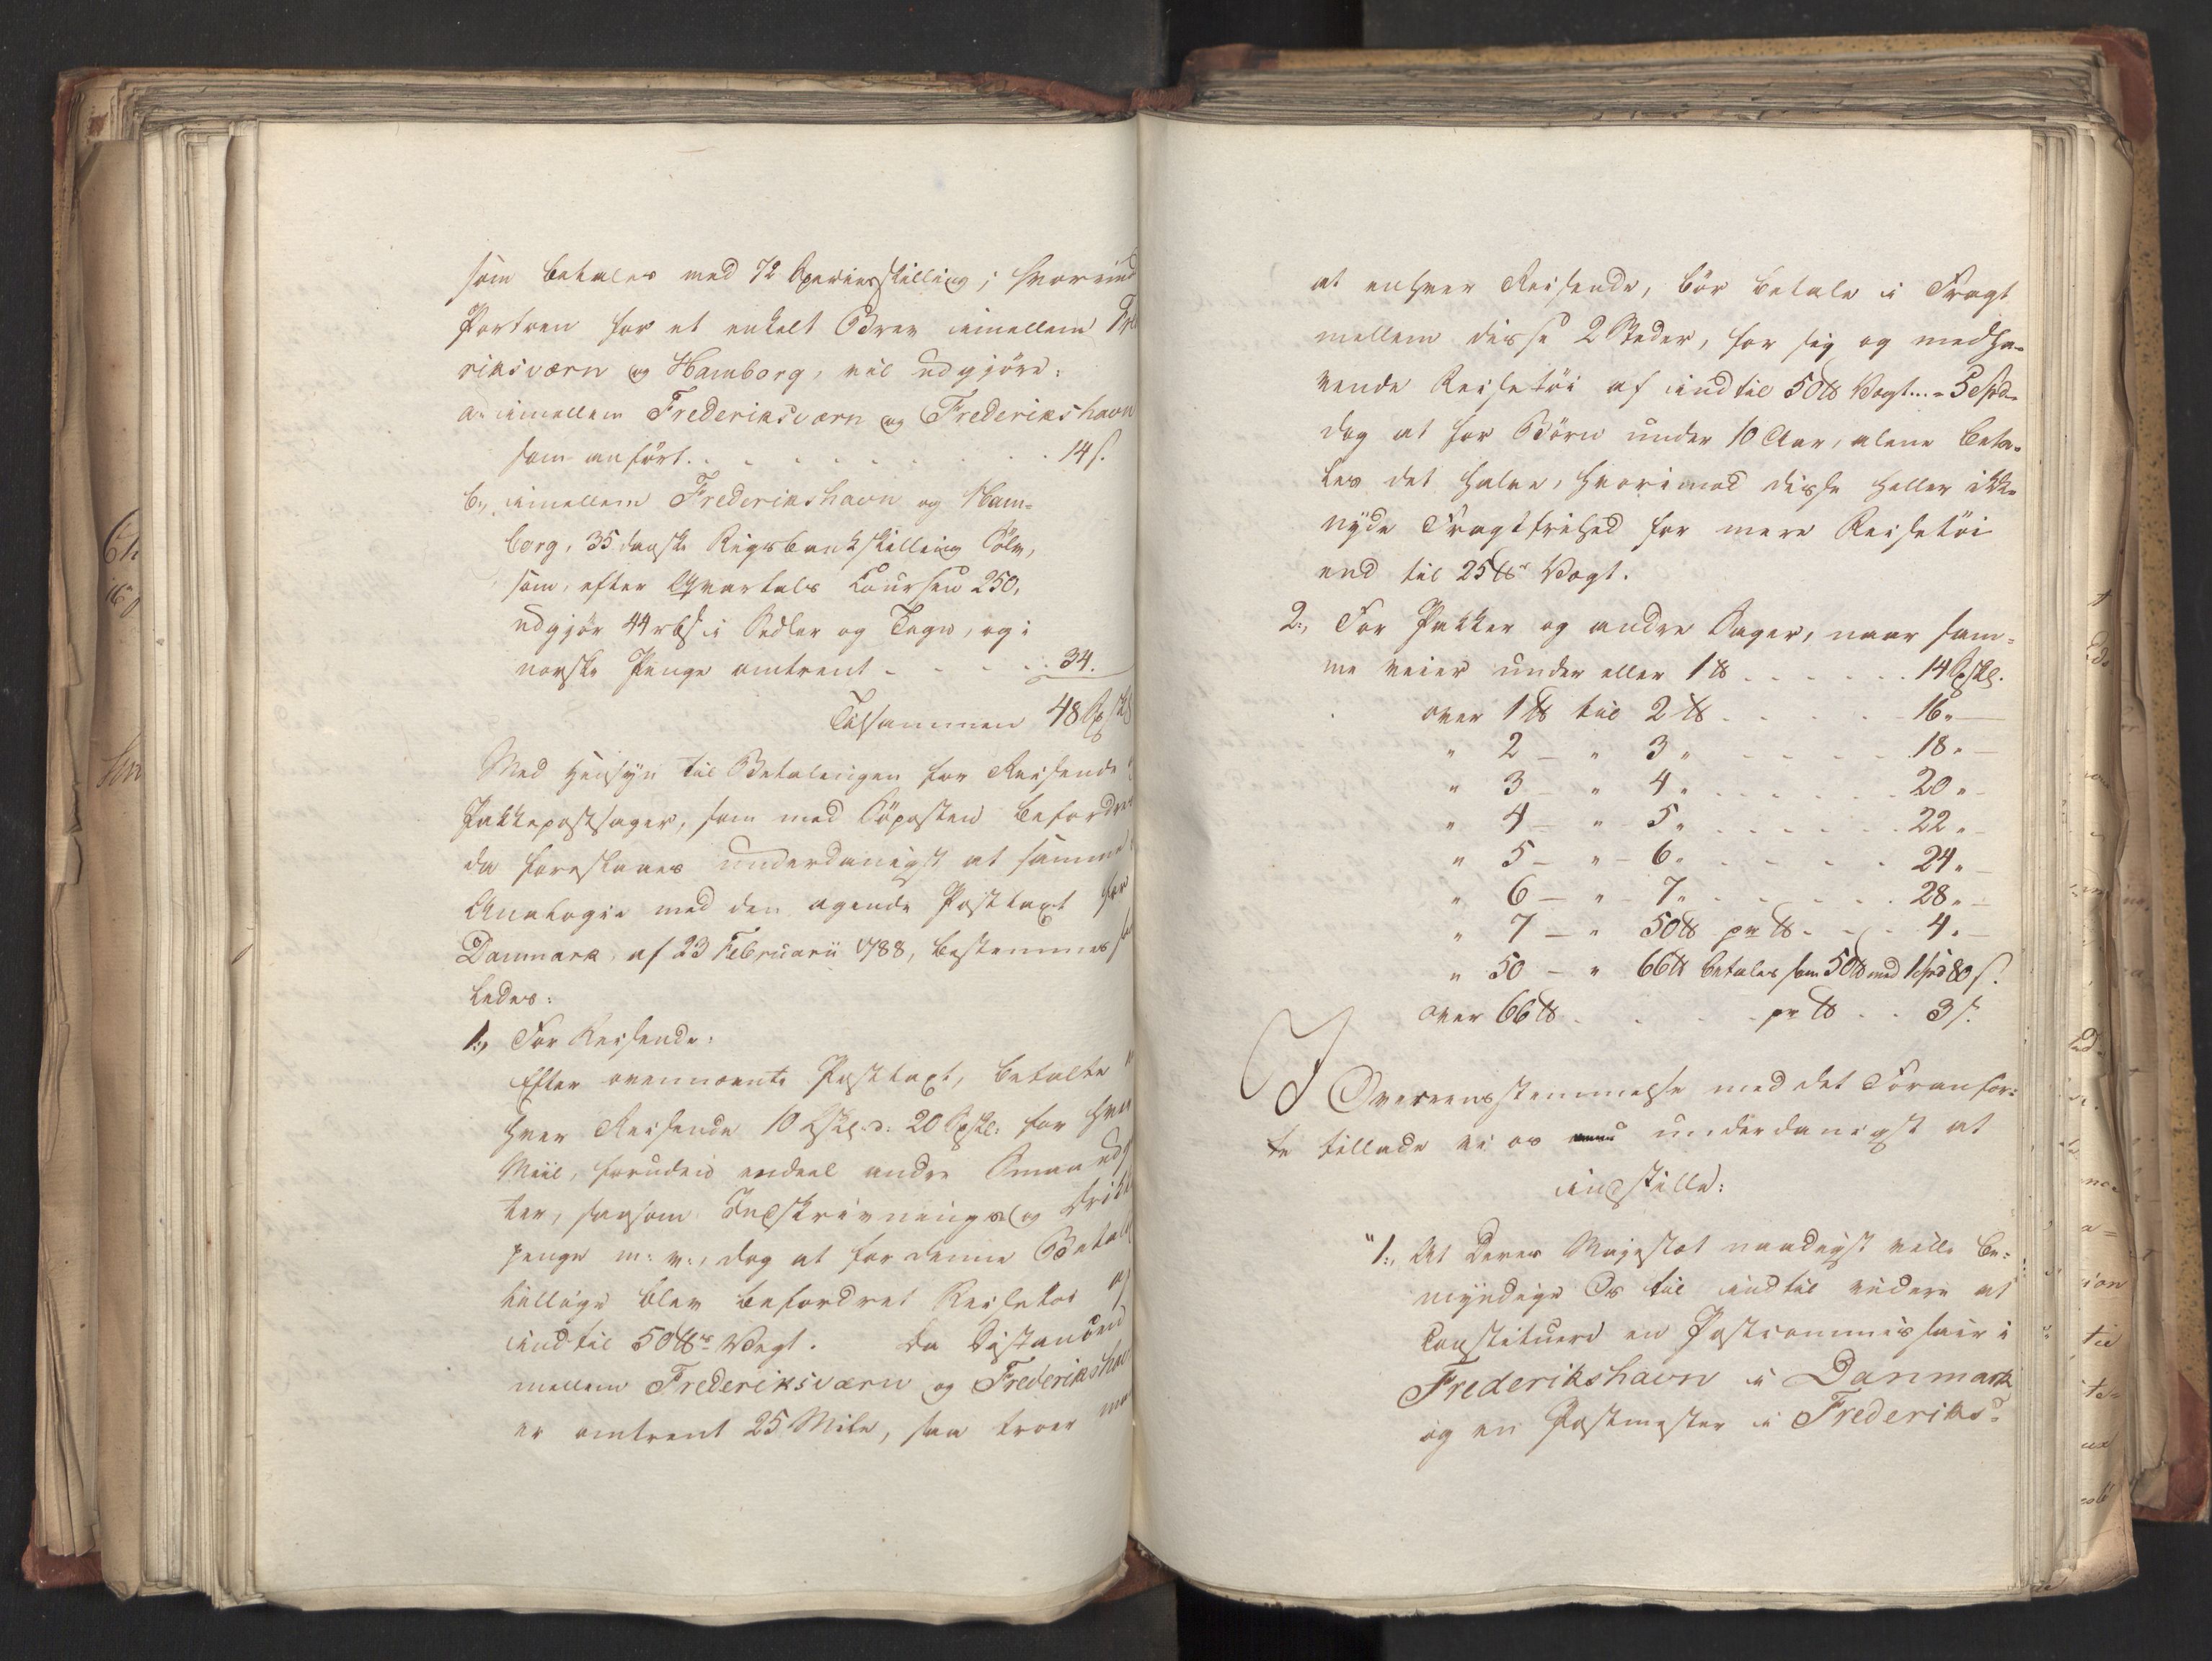 som betales med 72 Speciesskilling; hvorimod
Portoen for et enkelt Brev imellem Fre
riksværn og Hamborg, vil udgjøre:
a., imellem Frederiksværn og Frederikshavn
som anført. . . . . . . . . 14 s.
b., imellem Frederikshavn og Ham=
borg, 35 danske Rigsbankskilling Sølv,
som, efter Qvartals Coursen 250,
udgjør 44 rbs. i Sedler og Tegn, og i
norske Penge omtrent - - - - 34.
Tilsammen 48 Spskl
Med Hensyn til Betalingen for Reisende
Pakkepostsager, som med Søposten befordres
da foreslaaes underdanigst at samme
Analogie med den agende Posttaxt for
Danmark, af 23 Februarii 1788, bestemmes saa
ledes:
1., For Reisende:
Efter ovennævnte Posttaxt, betalte
hver Reisende 10 Lskl. ɔ: 20 Spskl: for hver
Miil, foruden endeel andre Smaa udgif
ter, saasom Indskrivnings og Drikke
penge m: v:, dog at for denne Betal
tillige blev befordret Reisetøi af
indtil 50 ℔s Vægt. Da Distancen
mellem Frederiksværn og Frederikshavn
er omtrent 25 Mile, saa troer man
at enhver Reisende, bør betale i Fragt
mellem disse 2 Steder, for sig og medha=
vende Reisetøi af indtil 50 ℔ Vægt... - 5 Spd.
dog at for Børn under 10 Aar, alene beta=
les det halve, hvorimod disse heller ikke
nyde Fragtfrihed for mere Reisetøi
end til 25 ℔s Vægt.
2., For Pakker og andre Sager, naar sam=
me veier under eller 1 ℔ . . . . . . 14 Spskl.
over 1 ℔ til 2 ℔ . . . . . 16. —
" 2 — " 3 " . . . . . 18. —
" 3 — " 4 " . . . . . 20 " —
" 4 — " 5 " . . . . . 22 " —
" 5 — " 6 " . . . . . 24 " —
" 6 — " 7 " . . . . . 28 " —
" 7 — " 50 ℔ pr ℔ - . . 4. —
" 50 — " 66 ℔ betales som 50 ℔ med 1 Spd 80 s.
over 66 ℔ . . . . pr ℔ . . 3 s.
I Overeensstemmelse med det Foranfør=
te tillade vi os underdanigst at
indstille:
"1., At Deres Majestæt naadigst ville be=
myndige Os til indtil videre at
Constituere en Postcommissair i
Frederikshavn i Danmark
og en Postmester i Frederiks=